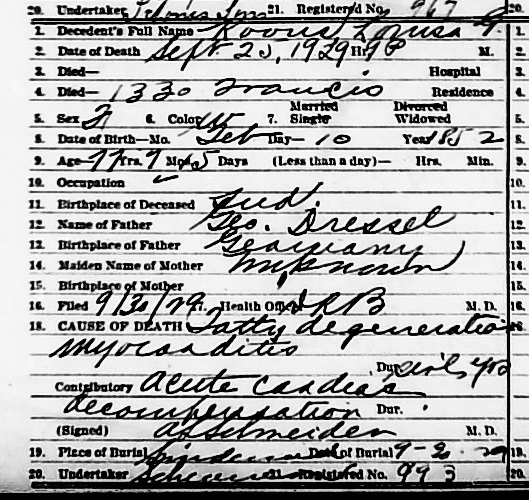 20. Undertaker Sons 21. Registered No. 967
1. Decedent's Full Name Koons Louisa 1.
2. Date of Death Sept. 25, 1929 Hr. 9 P M. 2.
3. Died— Hospital 3.
4. Died— 1330 Francis Residence 4.
5. Sex F 6. Color W 7. Married Single Divorced Widowed 5.
8. Date of Birth—Mo. Feb Day— 10 Year 1852 8.
9. Age— 77 Yrs. 7 Mo. 15 Days (Less than a day)— Hrs. Min. 9.
10. Occupation ✓ 10.
11. Birthplace of Deceased Ind. 11.
12. Name of Father Geo. Dressel 12.
13. Birthplace of Father Germany 13.
14. Maiden Name of Mother Unknown 14.
15. Birthplace of Mother " 15.
16. Filed 9/30/29 17. Health Officer HRB M. D. 16.
18. CAUSE OF DEATH Fatty degeneration 18.
myocarditis
Dur. yrs
Contributory Acute cardiac
decompensation Dur.
(Signed) Schneider M. D.
19. Place of Burial Date of Burial 9-2 -29 19.
20. Undertaker 21. Registered No. 993 20.